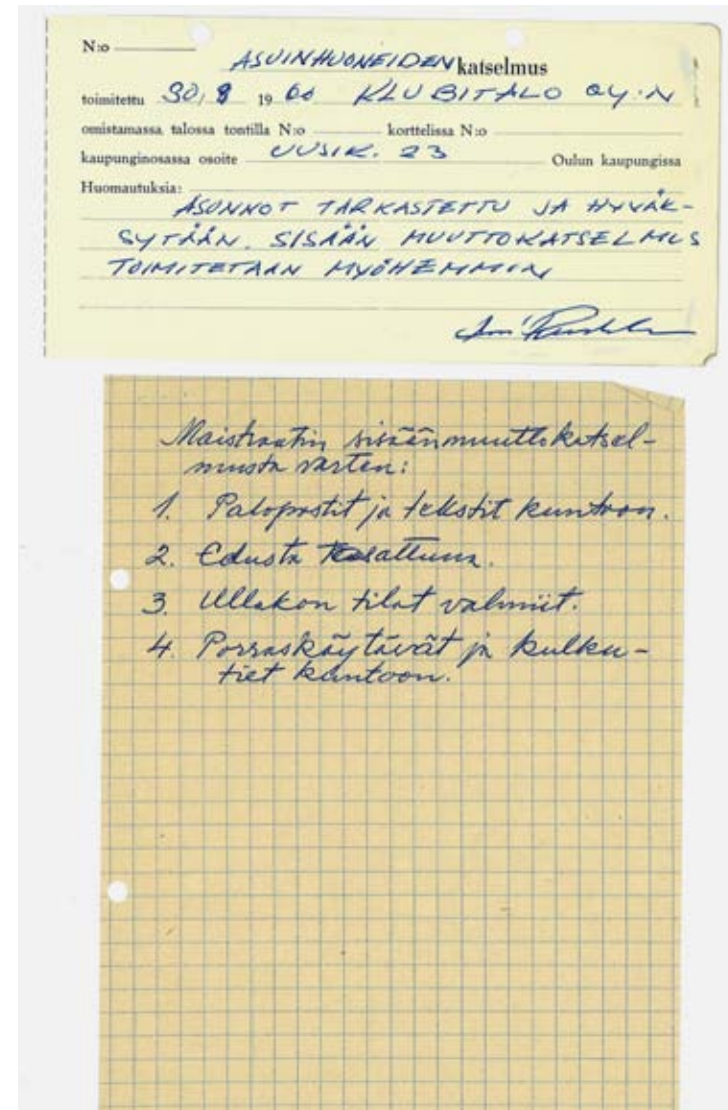 N:o
ASUINHUONEIDEN katselmus
toimitettu 30,8 19 60 KLUBITALO OY:N
omistamassa talossa tontilla N:o korttelissa N:o
kaupunginosassa osoite UUSIK. 23 Oulun kaupungissa
Huomautuksia:
ASUNNOT TARKASTETTU JA HYVÄK-
SYTÄÄN. SISÄÄN MUUTTOKATSELMUS
TOIMITETAAN MYÖHEMMIN
Maistraatin sisäänmuuttokatsel-
musta varten:
1. Palopostit ja tekstit kuntoon.
2. Edusta tasattuna.
3. Ullakon tilat valmiit.
4. Porraskäytävät ja kulku-
tiet kuntoon.